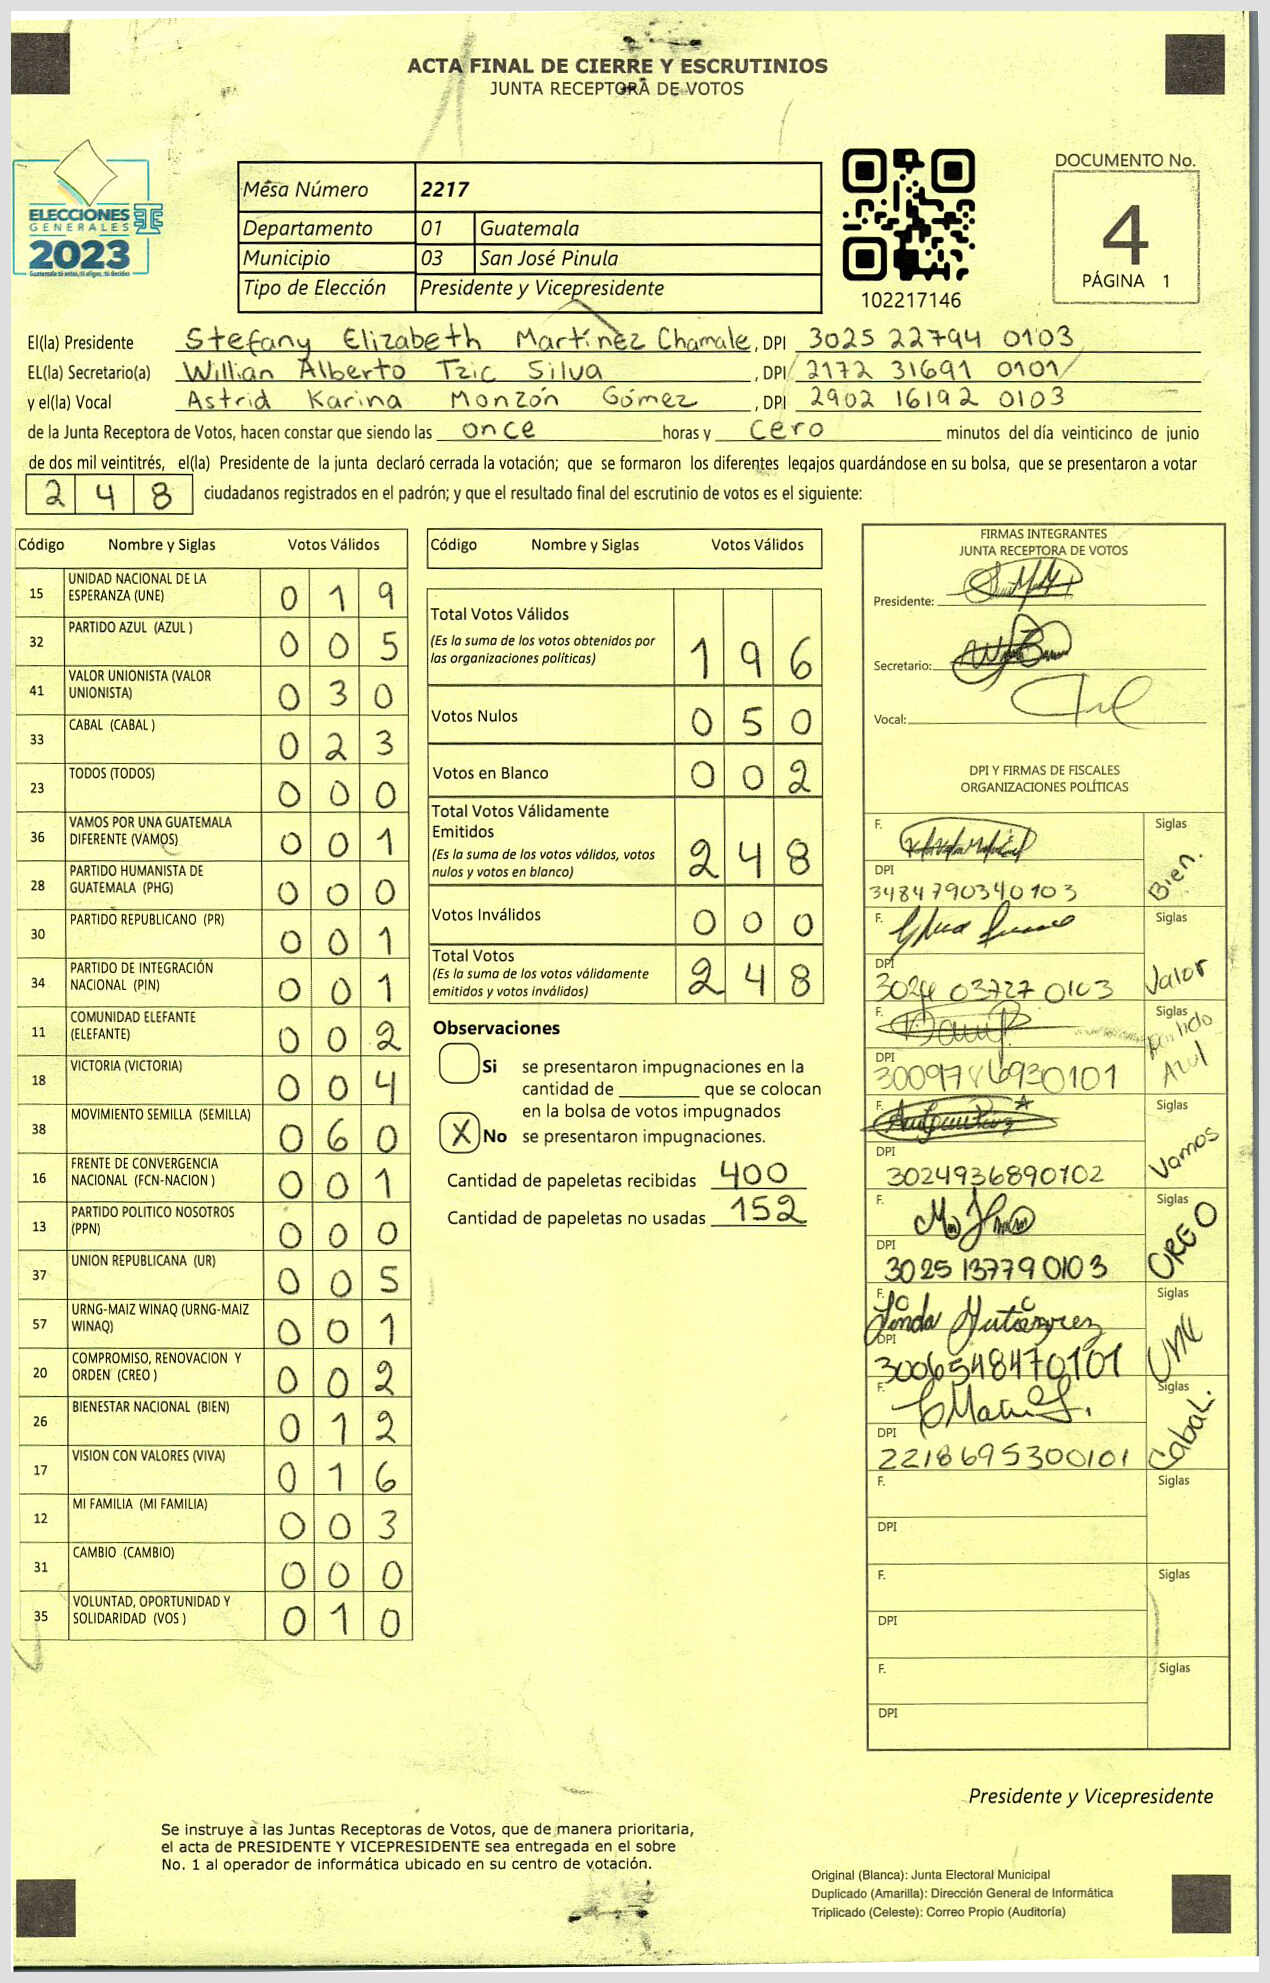 ACTA FINAL DE CIERRE Y ESCRUTINIOS
JUNTA RECEPTORA DE VOTOS
ELECCIONES
GENERALES
2023
Guatemala tú antes, tú eliges, tú decides
Mesa Número 2217
Departamento 01 Guatemala
Municipio 03 San José Pinula
Tipo de Elección Presidente y Vicepresidente
102217146
DOCUMENTO No.
4
PÁGINA 1
El(la) Presidente Stefany Elizabeth Martínez Chamale, DPI 3025 22794 0103
EL(la) Secretario(a) Willian Alberto Tzic Silva, DPI 2172 31691 0101
y el(la) Vocal Astrid Karina Monzón Gómez, DPI 2902 16192 0103
de la Junta Receptora de Votos, hacen constar que siendo las once horas y cero minutos del día veinticinco de junio
de dos mil veintitrés, el(la) Presidente de la junta declaró cerrada la votación; que se formaron los diferentes legajos guardándose en su bolsa, que se presentaron a votar
248 ciudadanos registrados en el padrón; y que el resultado final del escrutinio de votos es el siguiente:
Código Nombre y Siglas Votos Válidos
15 UNIDAD NACIONAL DE LA ESPERANZA (UNE) 019
32 PARTIDO AZUL (AZUL ) 005
41 VALOR UNIONISTA (VALOR UNIONISTA) 030
33 CABAL (CABAL ) 023
23 TODOS (TODOS) 000
36 VAMOS POR UNA GUATEMALA DIFERENTE (VAMOS) 001
28 PARTIDO HUMANISTA DE GUATEMALA (PHG) 000
30 PARTIDO REPUBLICANO (PR) 001
34 PARTIDO DE INTEGRACIÓN NACIONAL (PIN) 001
11 COMUNIDAD ELEFANTE (ELEFANTE) 002
18 VICTORIA (VICTORIA) 004
38 MOVIMIENTO SEMILLA (SEMILLA) 060
16 FRENTE DE CONVERGENCIA NACIONAL (FCN-NACION ) 001
13 PARTIDO POLITICO NOSOTROS (PPN) 000
37 UNION REPUBLICANA (UR) 005
57 URNG-MAIZ WINAQ (URNG-MAIZ WINAQ) 001
20 COMPROMISO, RENOVACION Y ORDEN (CREO ) 002
26 BIENESTAR NACIONAL (BIEN) 012
17 VISION CON VALORES (VIVA) 016
12 MI FAMILIA (MI FAMILIA) 003
31 CAMBIO (CAMBIO) 000
35 VOLUNTAD, OPORTUNIDAD Y SOLIDARIDAD (VOS ) 010
Código Nombre y Siglas Votos Válidos
Total Votos Válidos 196
(Es la suma de los votos obtenidos por
las organizaciones políticas)
Votos Nulos 050
Votos en Blanco 002
Total Votos Válidamente
Emitidos 248
(Es la suma de los votos válidos, votos
nulos y votos en blanco)
Votos Inválidos 000
Total Votos 248
(Es la suma de los votos válidamente
emitidos y votos inválidos)
Observaciones
Si se presentaron impugnaciones en la
cantidad de ________ que se colocan
en la bolsa de votos impugnados
X No se presentaron impugnaciones.
Cantidad de papeletas recibidas 400
Cantidad de papeletas no usadas 152
FIRMAS INTEGRANTES
JUNTA RECEPTORA DE VOTOS
Presidente:
Secretario:
Vocal:
DPI Y FIRMAS DE FISCALES
ORGANIZACIONES POLÍTICAS
F. Siglas
DPI Bien.
3484790340103
F. Siglas
DPI Valor
3024 03727 0103
F. Siglas
DPI Partido Azul
3009786930101
F. Siglas
DPI Vamos
3024936890102
F. Siglas
DPI CREO
3025137790103
F. Linda Gutiérrez Siglas
DPI UNE
3006548470101
F. Siglas
DPI Cabal.
2218695300101
F. Siglas
DPI
F. Siglas
DPI
F. Siglas
DPI
Presidente y Vicepresidente
Se instruye a las Juntas Receptoras de Votos, que de manera prioritaria,
el acta de PRESIDENTE Y VICEPRESIDENTE sea entregada en el sobre
No. 1 al operador de informática ubicado en su centro de votación.
Original (Blanca): Junta Electoral Municipal
Duplicado (Amarilla): Dirección General de Informática
Triplicado (Celeste): Correo Propio (Auditoría)